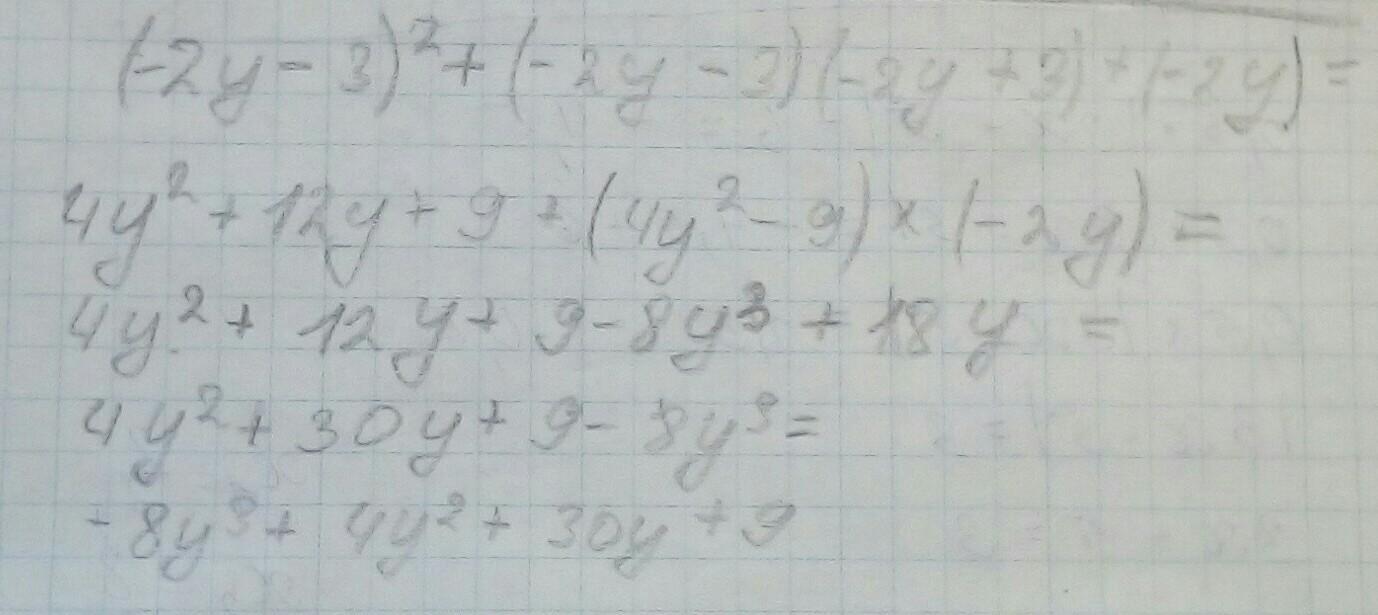 (-2y-3)²+(-2y-3)(-2y+3)+(-2y)=
4y²+12y+9+(4y²-9)×(-2y)=
4y²+12y+9-8y³+18y=
4y²+30y+9-8y³=
-8y³+4y²+30y+9